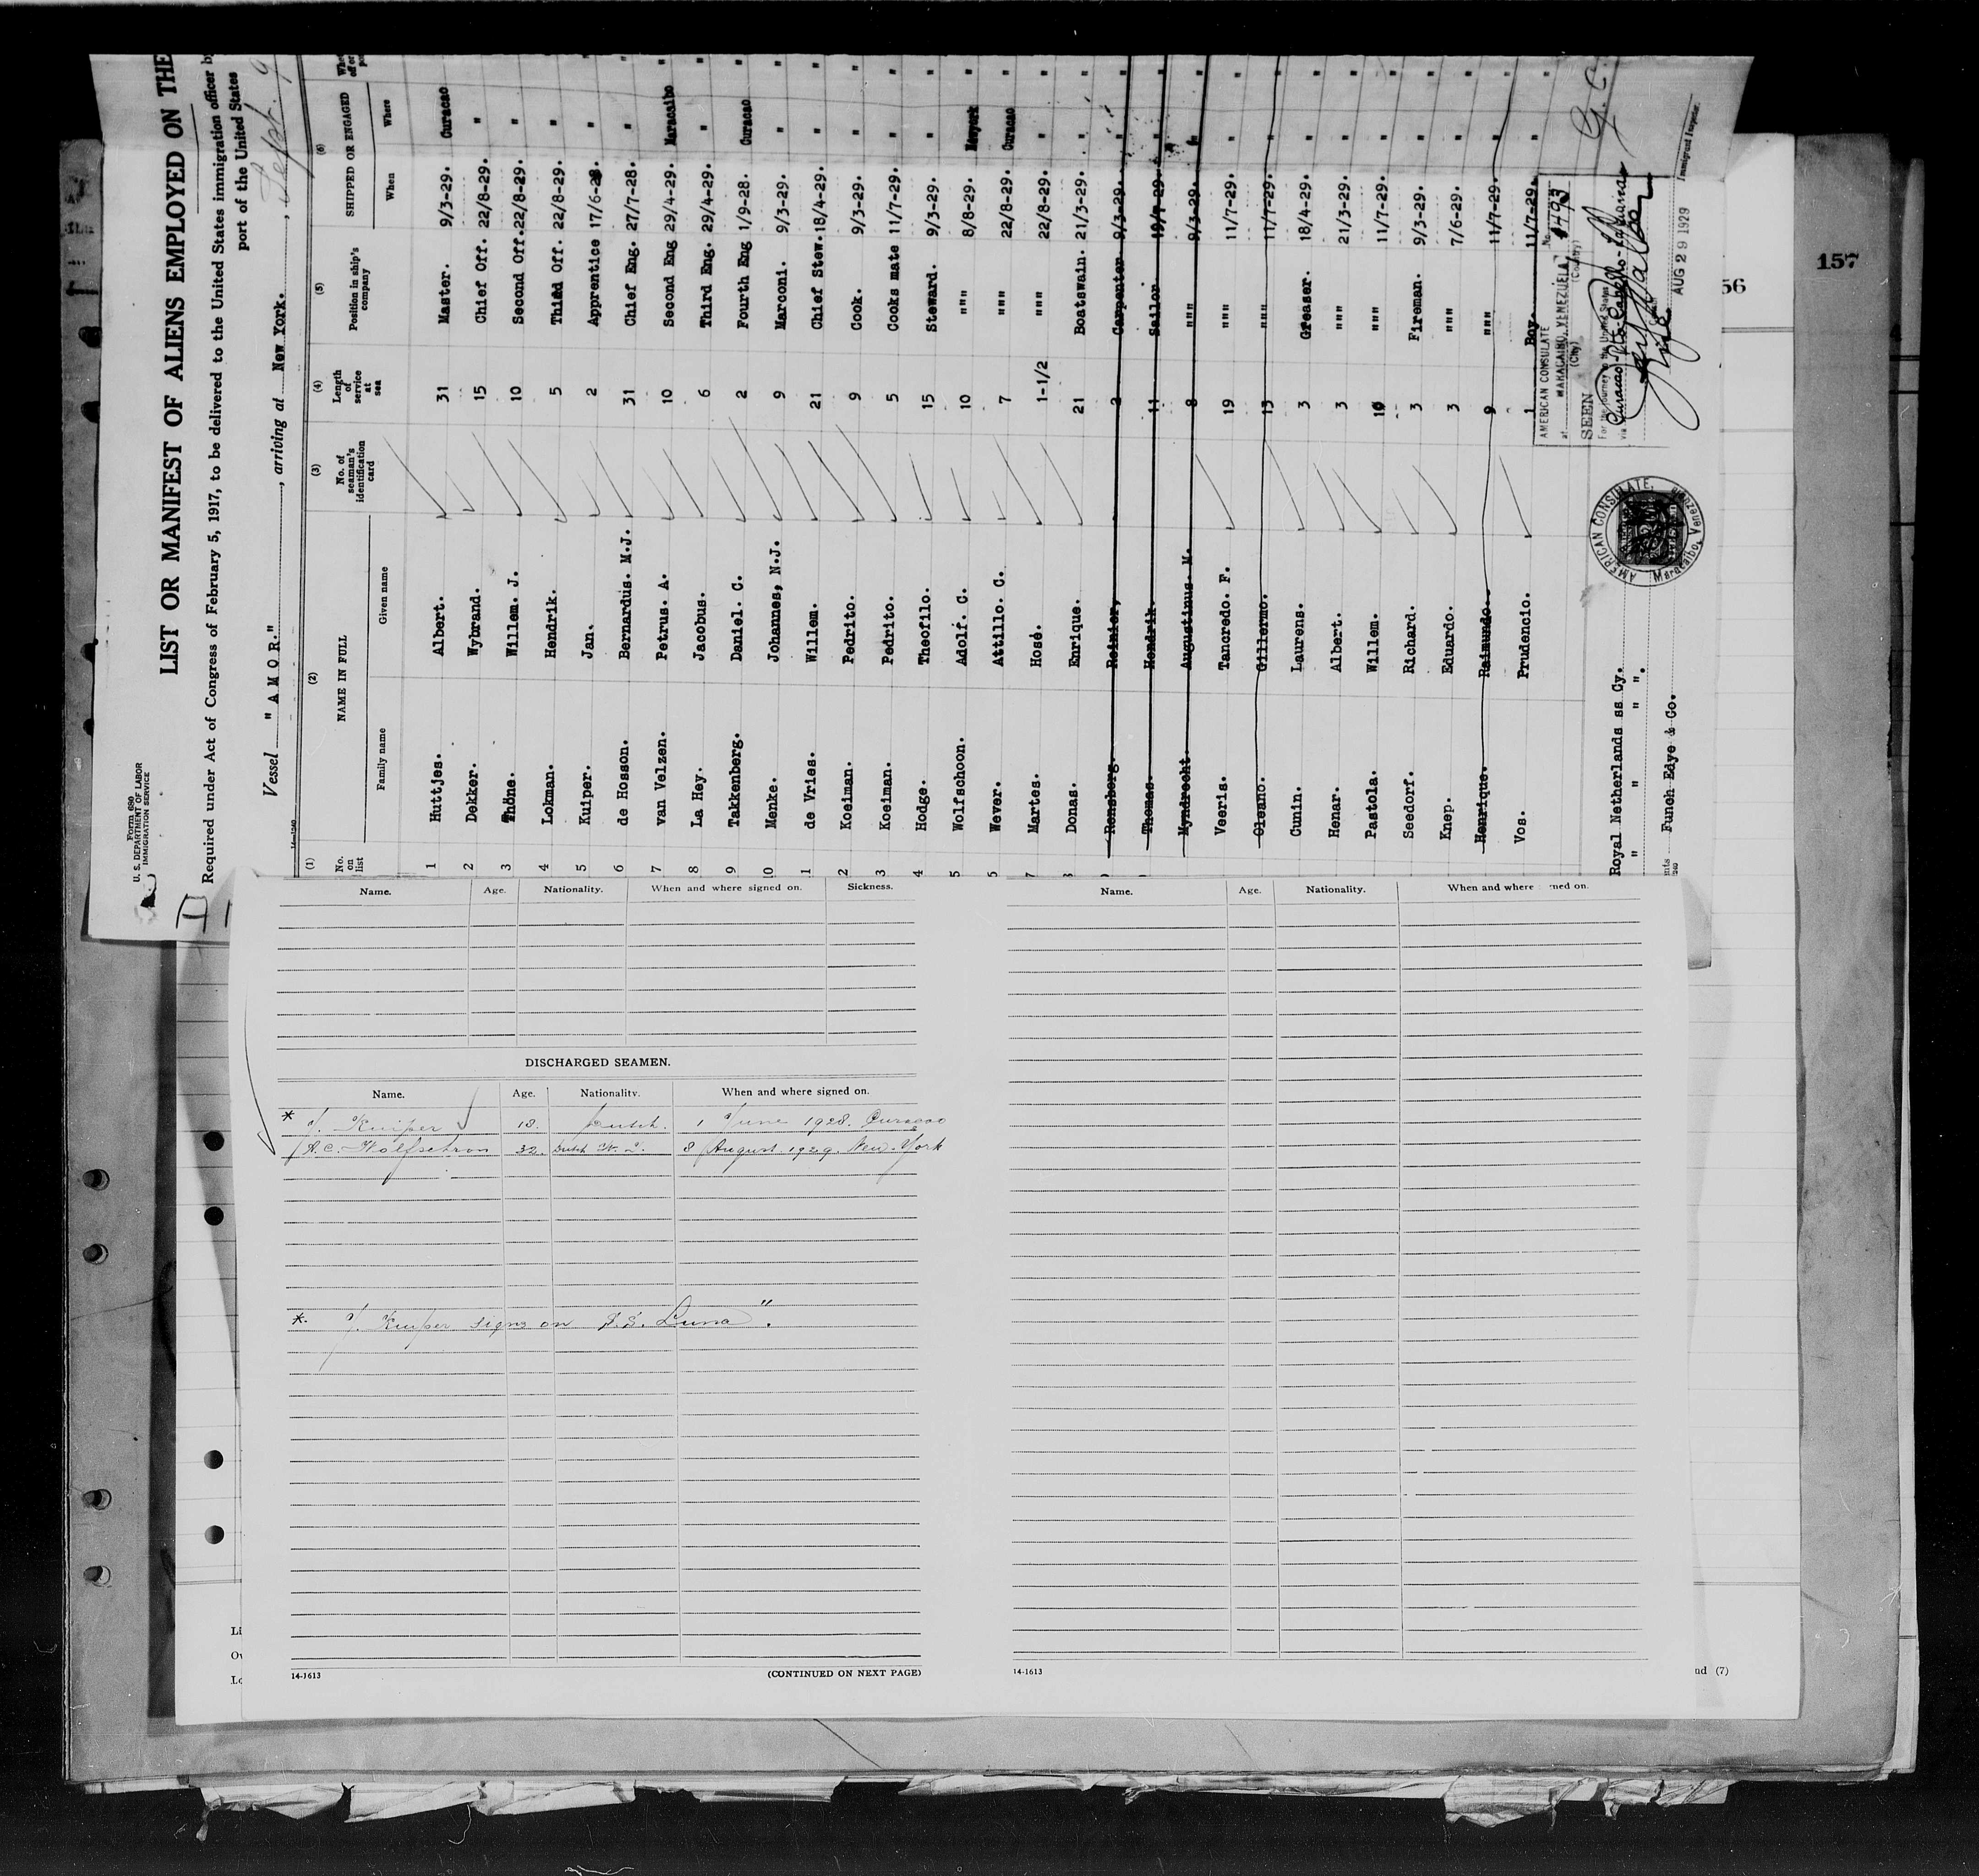 Form 680
U. S. DEPARTMENT OF LABOR
IMMIGRATION SERVICE
LIST OR MANIFEST OF ALIENS EMPLOYED ON THE
Required under Act of Congress of February 5, 1917, to be delivered to the United States immigration officer by
port of the United States
Vessel "AMOR.", arriving at New York. , Sept. 9
(1) (2) (3) (4) (5) (6)
No. on list NAME IN FULL No. of seaman's identification card Length of service at sea Position in ship's company SHIPPED OR ENGAGED
Family name Given name When Where
1 Huttjes. Albert. 31 Master. 9/3-29. Curacao "
2 Dekker. Wybrand. 15 Chief Off. 22/8-29. " "
3 Thöne. Willem. J. 10 Second Off. 22/8-29. " "
4 Lokman. Hendrik. 5 Third Off. 22/8-29. " "
5 Kuiper. Jan. 2 Apprentice 17/6-28. " "
6 de Hosson. Bernardus. M.J. 31 Chief Eng. 27/7-28. " "
7 van Velzen. Petrus. A. 10 Second Eng 29/4-29. Maracaibo "
8 La Hey. Jacobus. 6 Third Eng. 29/4-29. " "
9 Takkenberg. Daniel. C. 2 Fourth Eng 1/9-28. Curacao "
0 Menke. Johannes, N.J. 9 Marconi. 9/3-29. " "
1 de Vries. Willem. 21 Chief Stew. 18/4-29. " "
2 Koeiman. Pedrito. 9 Cook. 9/3-29. " "
3 Koeiman. Pedrito. 5 Cooks mate 11/7-29. " "
4 Hodge. Theofilo. 15 Steward. 9/3-29. " "
5 Wolfschoon. Adolf. C. 10 """ 8/8-29. Newyork "
6 Wever. Attillo. C. 7 """ 22/8-29. Curacao "
7 Martes. Hosé. 1-1/2 """ 22/8-29. " "
8 Donas. Enrique. 21 Boatswain. 21/3-29. " "
Rensberg. Reinier, 2 Carpenter 9/3-29. " "
Thomas. Hendrik. 11 Sailor. 19/7-29. " "
Myndrecht. Augustinus. M. 8 """ 9/3-29. " "
Veeris. Tancredo. F. 19 """ 11/7-29. " "
Oleano. Gillermo. 13 """ 11/7-29. " "
Cunin. Laurens. 3 Greaser. 18/4-29. " "
Henar. Albert. 3 """ 21/3-29. " "
Pastola. Willem. 10 """ 11/7-29. " "
Seedorf. Richard. 3 Fireman. 9/3-29. " "
Knep. Eduardo. 3 """ 7/6-29. " "
Henrique. Raimundo. 9 """ 11/7-29. " "
Vos. Prudencio. 1 Boy. 11/7-29. " "
AMERICAN CONSULATE
at MARACAIBO, VENEZUELA, No.
(City) (Country)
SEEN
For the journey to the United States
via Curacao
AUG 29 1929
Immigrant Inspector.
AMERICAN CONSULATE,
Maracaibo, Venezuela
Royal Netherlands ss Cy.
" " " ".
Funch Edye & Co.
56
157
Name. Age. Nationality. When and where signed on. Sickness.
Name. Age. Nationality. When and where ned on.
DISCHARGED SEAMEN.
Name. Age. Nationality. When and where signed on.
* J. Kuiper 18. Dutch. 1 June 1928. Curacao
A.C. Wolfschoon 32. Dutch W. I. 8 August 1929. New-York
*. J. Kuiper signs on S.S. Luna".
Li
Ov
Lo
14-1613 (CONTINUED ON NEXT PAGE)
14-1613
nd (7)